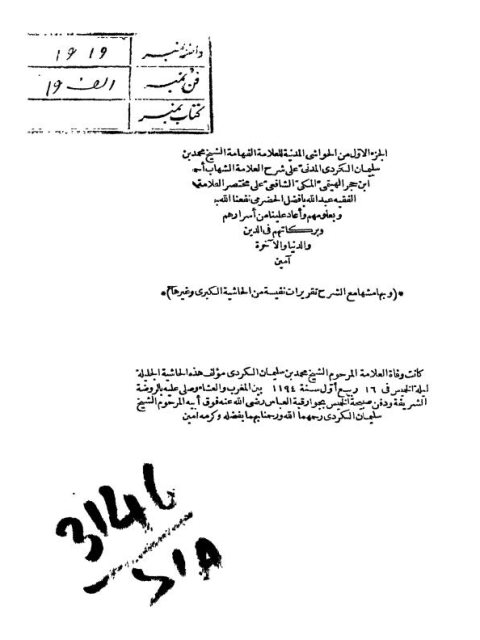 داخله نمبر ١٩١٩
فن نمبر الف ١٩
كتاب نمبر
الجزء الاول من الحواشى المدنية للعلامة الفهامة الشيخ محمد بن
سليمان الكردى المدنى على شرح العلامة الشهاب أحمد
ابن حجر الهيتمى المكى الشافعى على مختصر العلامة
الفقيه عبد الله بافضل الحضرمى نفعنا الله به
وبعلومهم وأعاد علينا من أسرارهم
وبركاتهم فى الدين
والدنيا والآخرة
آمين
*(وبهامشها مع الشرح تقريرات نفيسة من الحاشية الكبرى وغيرها)*
كانت وفاة العلامة المرحوم الشيخ محمد بن سليمان الكردى مؤلف هذه الحاشية الجليلة
ليلة الخميس فى ١٦ ربيع أول سنة ١١٩٤ بين المغرب والعشاء وصلى عليه بالروضة
الشريفة ودفن صبيحة الخميس بجوار قبة العباس رضى الله عنه فوق أبيه المرحوم الشيخ
سليمان الكردى رحمهما الله ورحمنا بهما بفضله وكرمه آمين